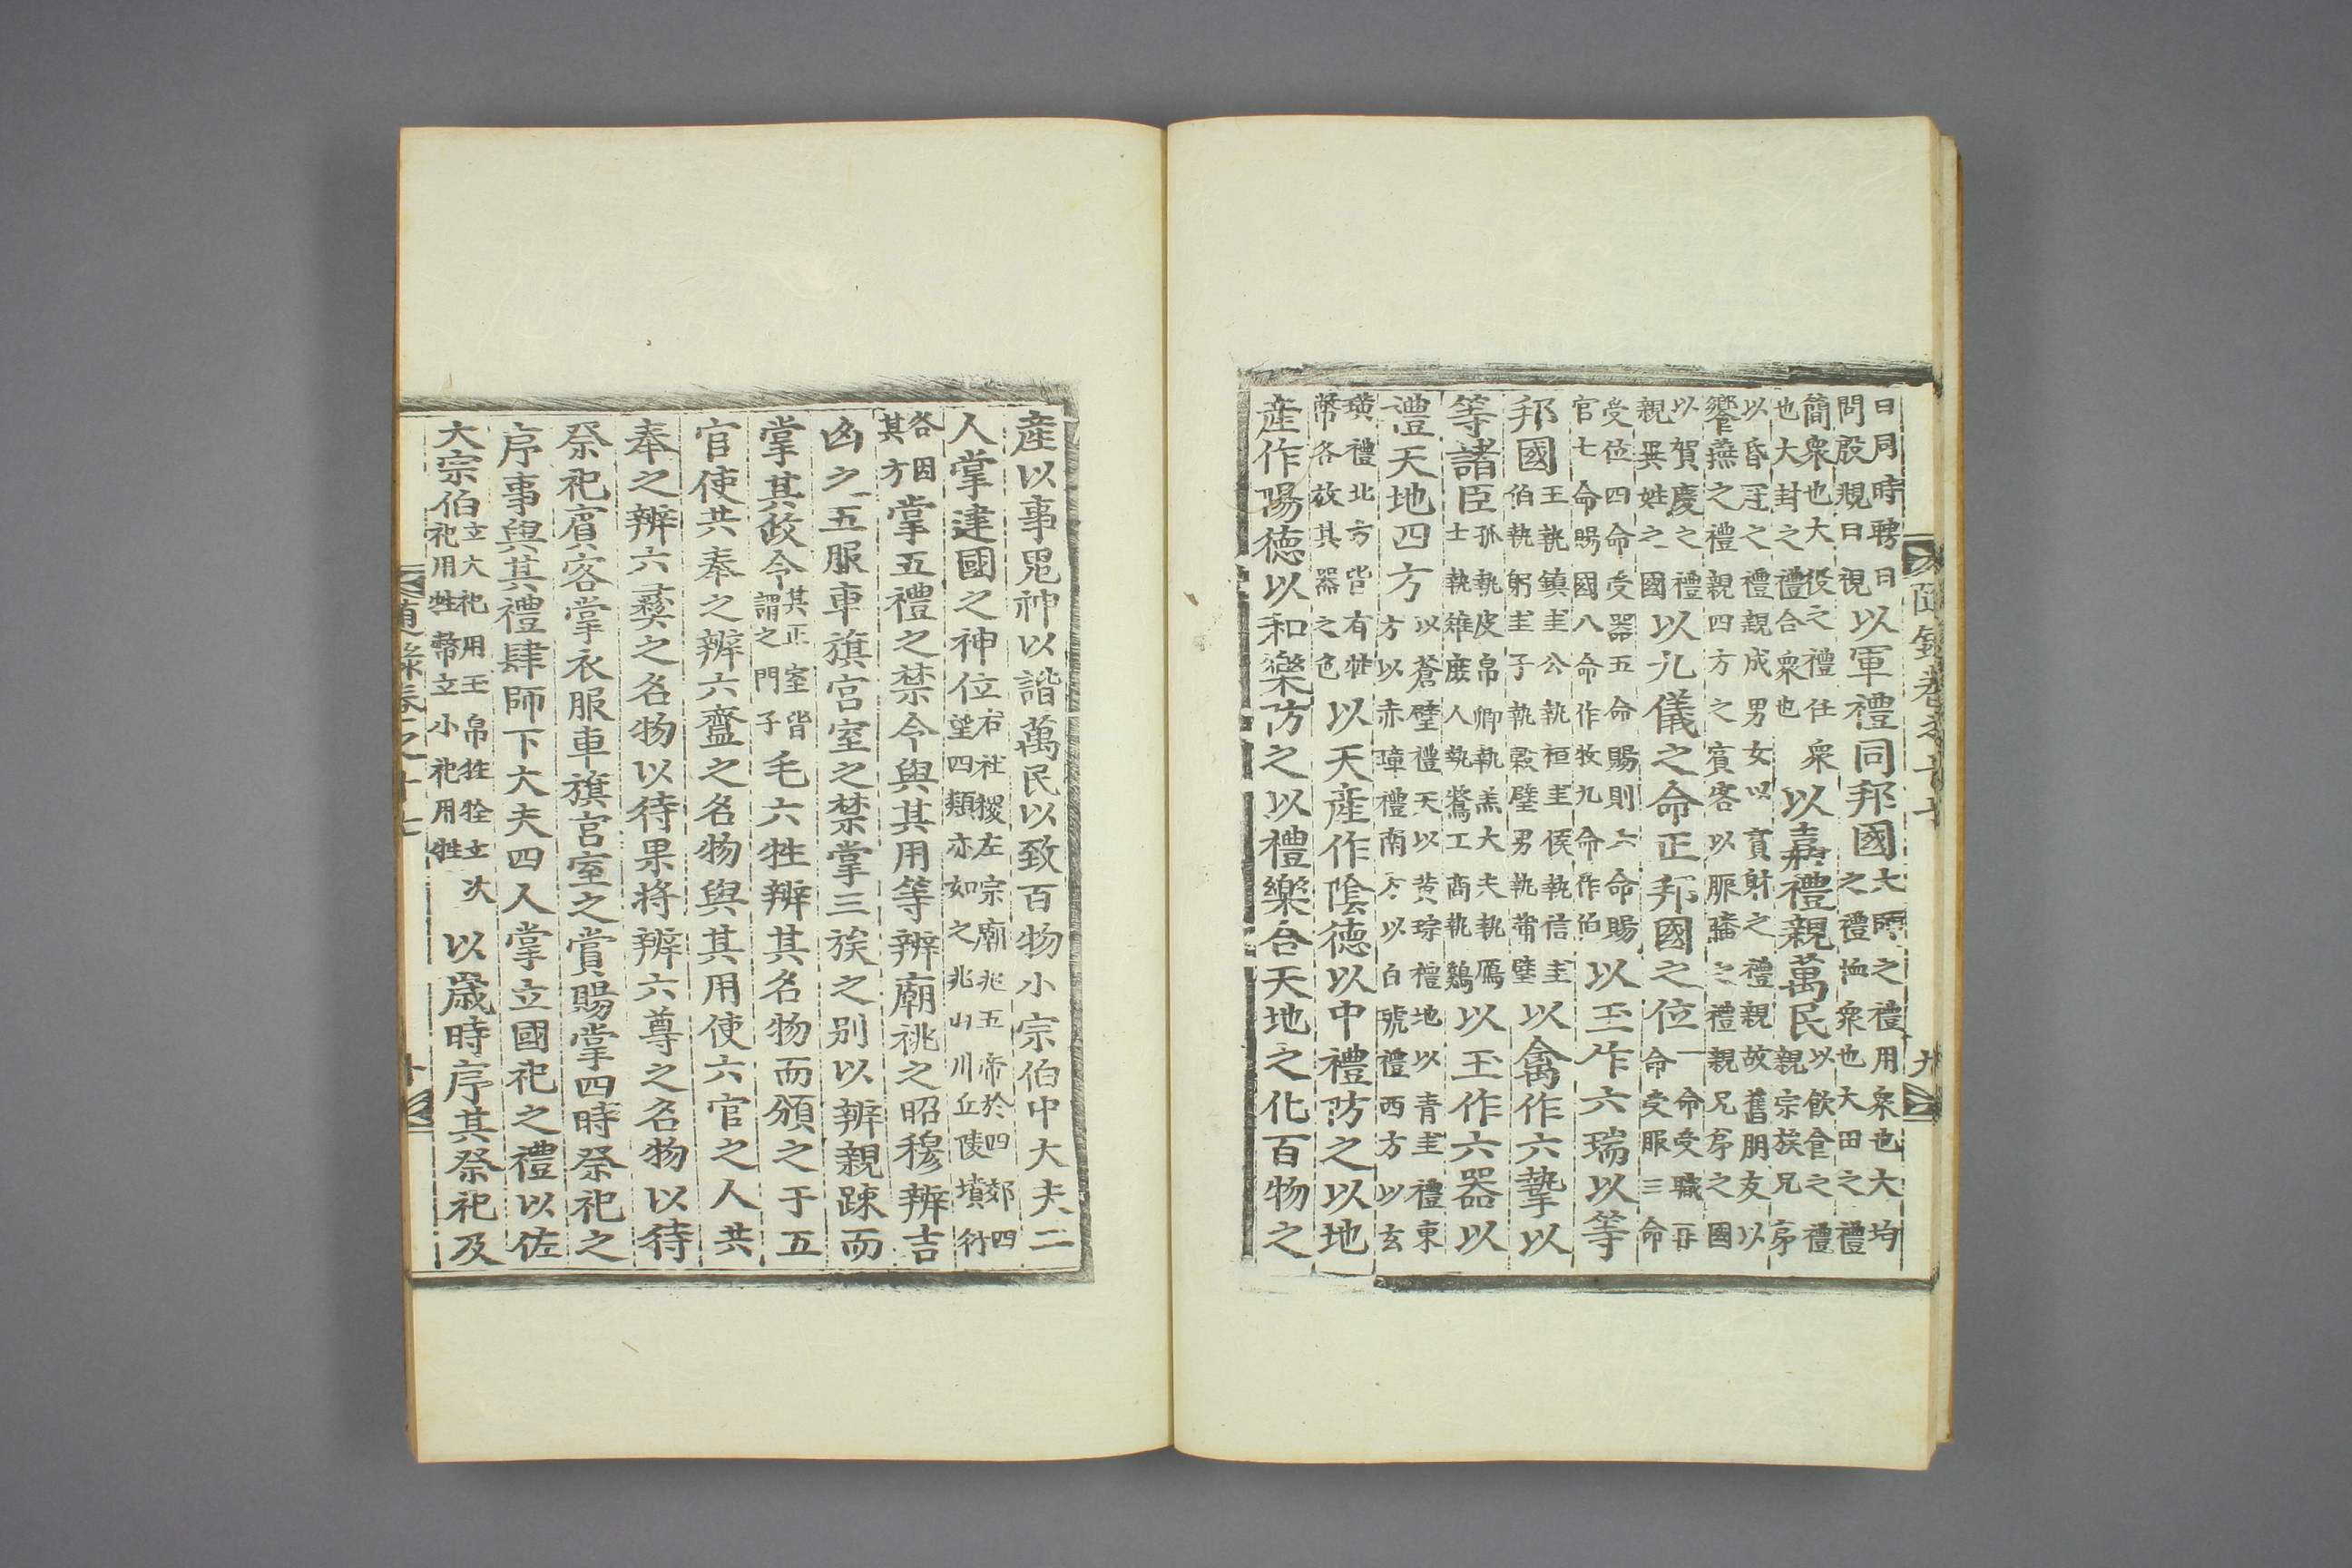 隨錄卷之十七 九
曰同時聘曰問殷覜曰視以軍禮同邦國大師之禮用衆也大均之禮恤衆也大田之禮
簡衆也大役之禮任衆也大封之禮合衆也以嘉禮親萬民以飲食之禮親宗族兄弟
以昏冠之禮親成男女以賓射之禮親故舊朋友以饗燕之禮親四方之賓客以脤膰之禮親兄弟之國
以賀慶之禮親異姓之國以九儀之命正邦國之位一命受職再命受服三命
受位四命受器五命賜則六命賜官七命賜國八命作牧九命作伯以玉作六瑞以等
邦國王執鎮圭公執桓圭侯執信圭伯執躬圭子執穀璧男執蒲璧以禽作六摯以
等諸臣孤執皮帛卿執羔大夫執鴈士執雉庶人執鶩工商執鷄以玉作六器以
禮天地四方以蒼璧禮天以黃琮禮地以青圭禮東方以赤璋禮南方以白琥禮西方以玄
璜禮北方皆有牲幣各放其器之色以天産作陰德以中禮防之以地
産作陽德以和樂防之以禮樂合天地之化百物之
産以事鬼神以諧萬民以致百物小宗伯中大夫二
人掌建國之神位右社稷左宗廟兆五帝於四郊四望四類亦如之兆山川丘陵墳衍
各因其方掌五禮之禁令與其用等辨廟祧之昭穆辨吉
凶之五服車旗宮室之禁掌三族之別以辨親踈而
掌其政令其正室皆謂之門子毛六牲辨其名物而頒之于五
官使共奉之辨六齍之名物與其用使六官之人共
奉之辨六彝之名物以待果將辨六尊之名物以待
祭祀賓客掌衣服車旗宮室之賞賜掌四時祭祀之
序事與其禮肆師下大夫四人掌立國祀之禮以佐
大宗伯立大祀用玉帛牲牷立次祀用牲幣立小祀用牲以歲時序其祭祀及
隨錄卷之十七 十